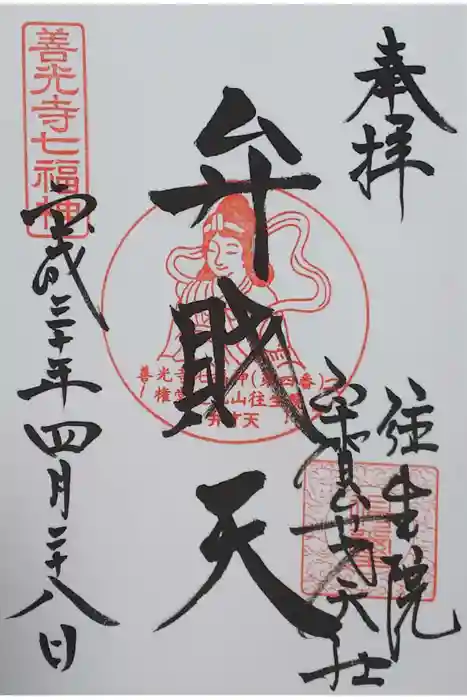 奉拝
往生院
天社
弁財天
善光寺七福神
平成三十年四月二十八日
善光寺七 神(第四番)
権 山往生
天